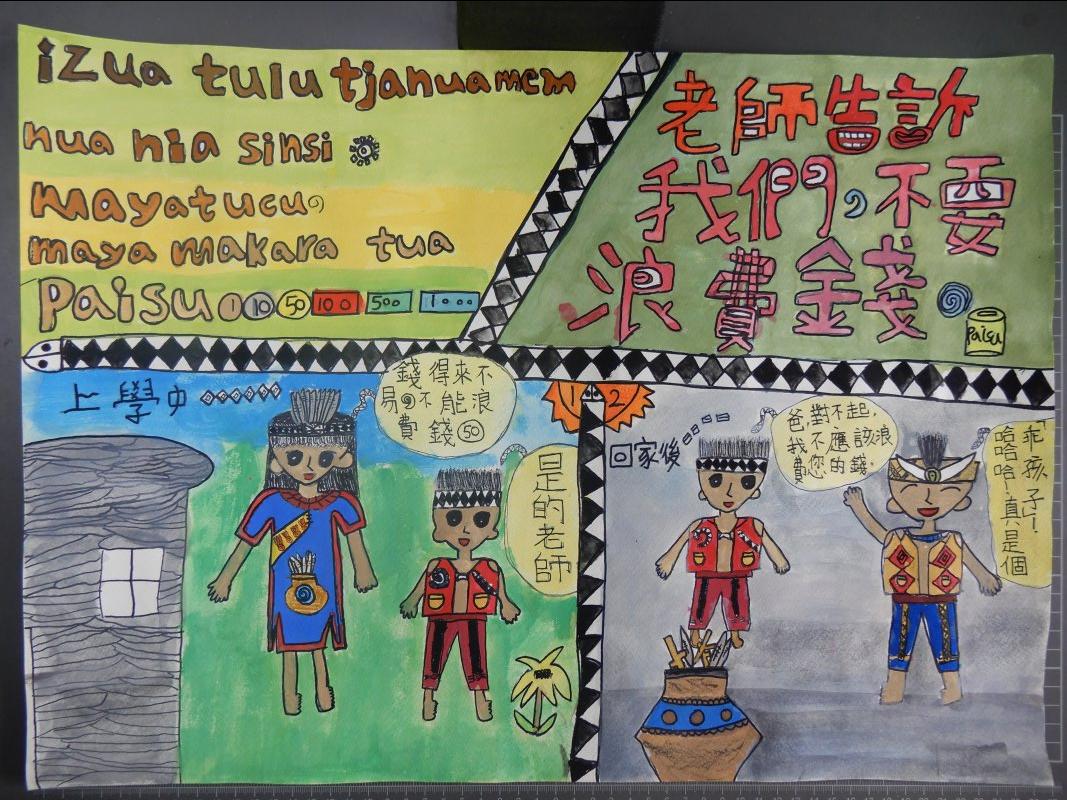 izua tulu tjanuamem
nua nia sinsi
mayatucu。
maya makara tua
Paisu 1 10 50 100 500 1000
老師告訴
我們，不要
浪費錢
Paisu
上學中
錢得來不
易，不能浪
費錢 50
是的老師
1 2
回家後
爸,對不起,
我不應該浪
費您的錢,
哈哈!真是個
乖孩子!